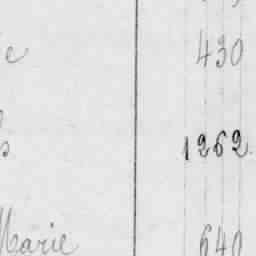 430
1262
Marie 640